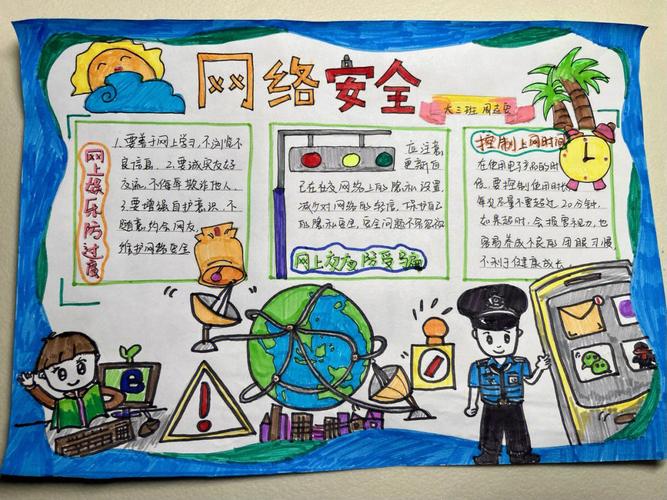 网络安全
大三班
网上娱乐防过度
1.要善于网上学习,不浏览不
良信息。2.要诚实友好
交流,不侮辱欺诈他人。
3.要增强自护意识,不
随意约会网友。
维护网络安全
应注意
更新自
己在社交网络上的隐私设置,
减少对网络的
的隐私安全,安全问题不容忽视
网上交友防受骗
控制上网时间
在使用电子产品的时
候,要控制使用时长
每次尽量不要超过20分钟,
如果超时,会损害视力,也
容易养成不良的用眼习惯
不利于健康成长。
e